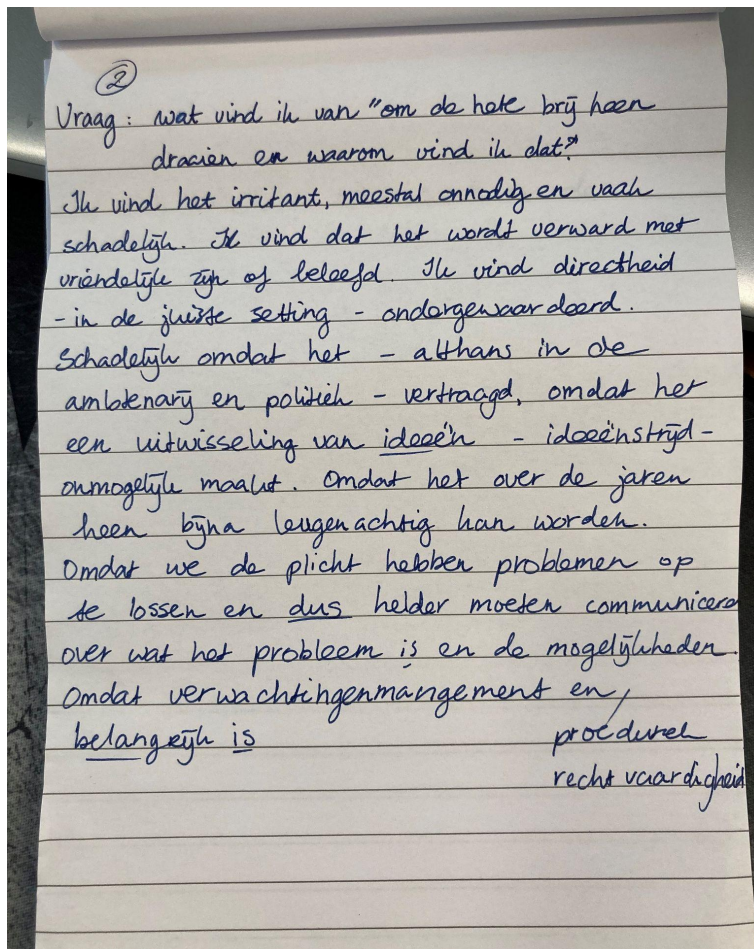 2
Vraag: wat vind ik van "om de hete brij heen
draaien en waarom vind ik dat?"
Ik vind het irritant, meestal onnodig en vaak
schadelijk. Ik vind dat het wordt verward met
vriendelijk zijn of beleefd. Ik vind directheid
- in de juiste setting - ondergewaardeerd.
Schadelijk omdat het - althans in de
ambtenarij en politiek - vertraagd, omdat het
een uitwisseling van ideeën - ideeënstrijd -
onmogelijk maakt. Omdat het over de jaren
heen bijna leugenachtig kan worden.
Omdat we de plicht hebben problemen op
te lossen en dus helder moeten communiceren
over wat het probleem is en de mogelijkheden.
Omdat verwachtingenmangement en
belangrijk is
procedureel
rechtvaardigheid